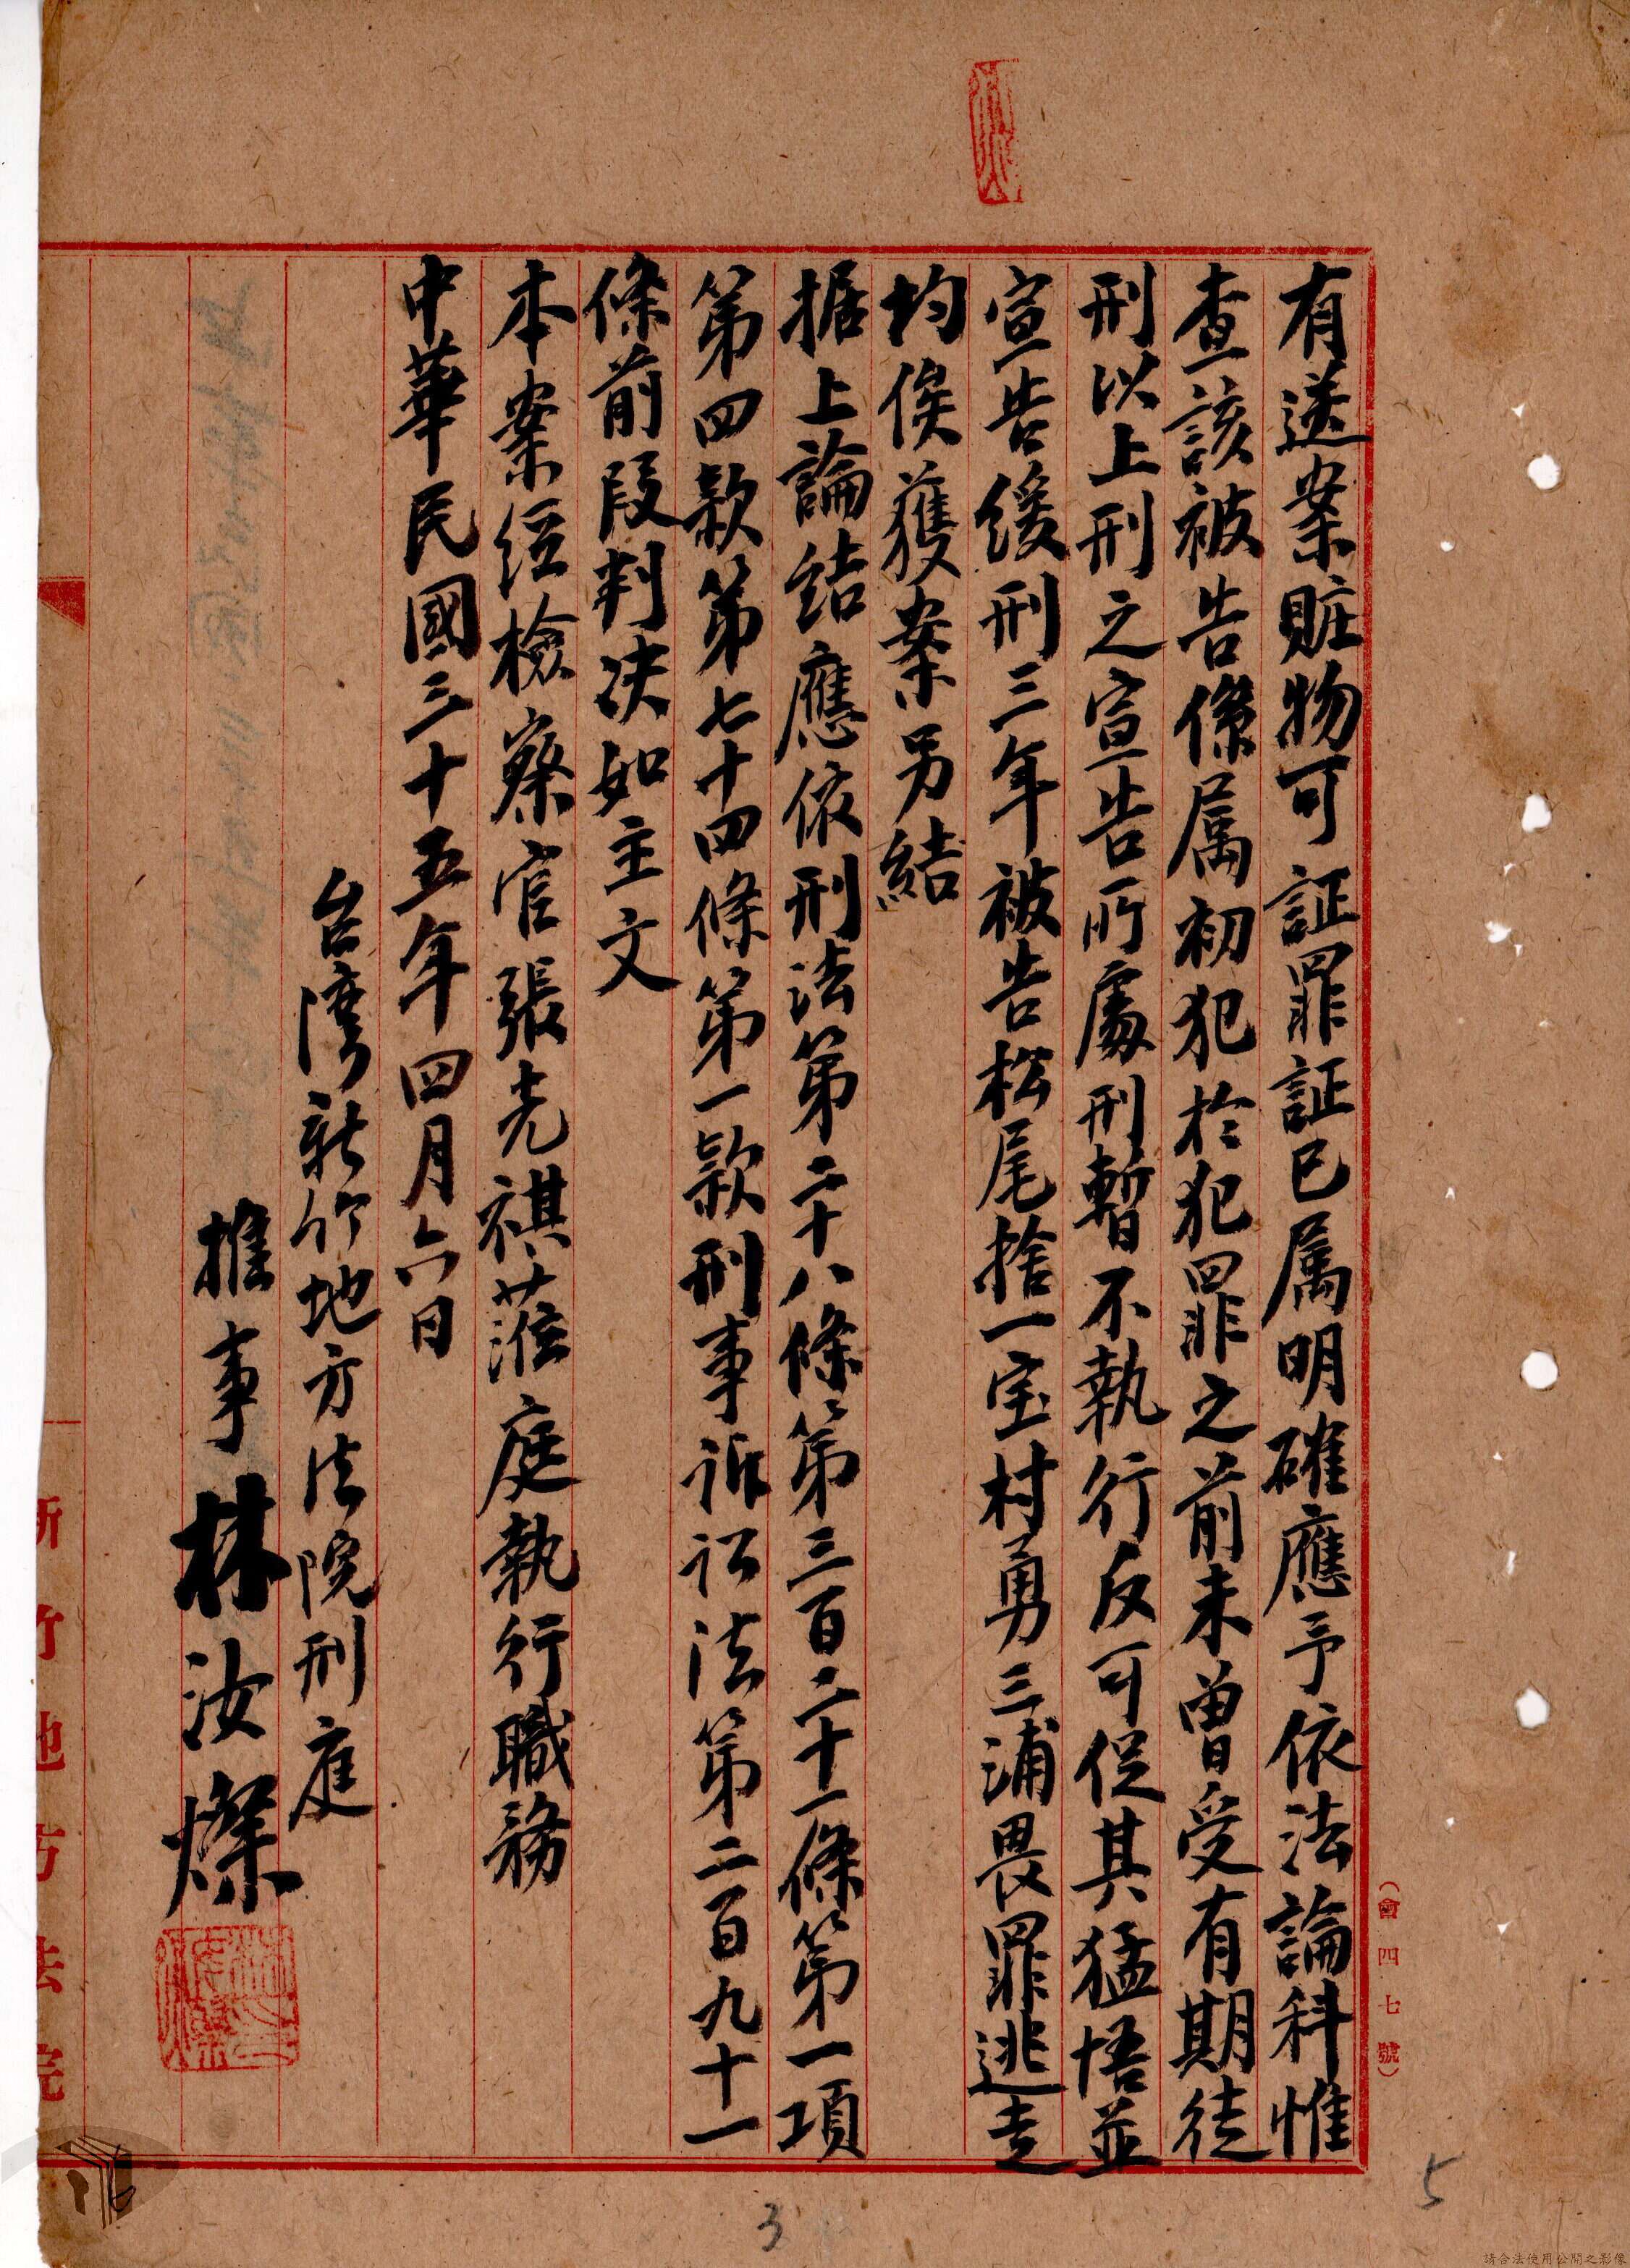 有送案賍物可証罪証已属明確應予依法論科惟
查該被告係属初犯於犯罪之前未曽受有期徒
刑以上刑之宣告所處刑暫不執行反可促其猛悟並
宣告緩刑三年被告松尾捨一宝村勇三浦畏罪逃走
均俟獲案另結
据上論结應依刑法第二十八條第三百二十一條第一項
第四款第七十四條第一款刑事訴訟法第二百九十一
條前段判决如主文
本案经檢察官張光祺蒞庭執行職務
中華民國三十五年四月六日
台湾新竹地方法院刑庭
推事林汝燦
(會四七號)
新竹地方法院
3
5
請合法使用公開之影像